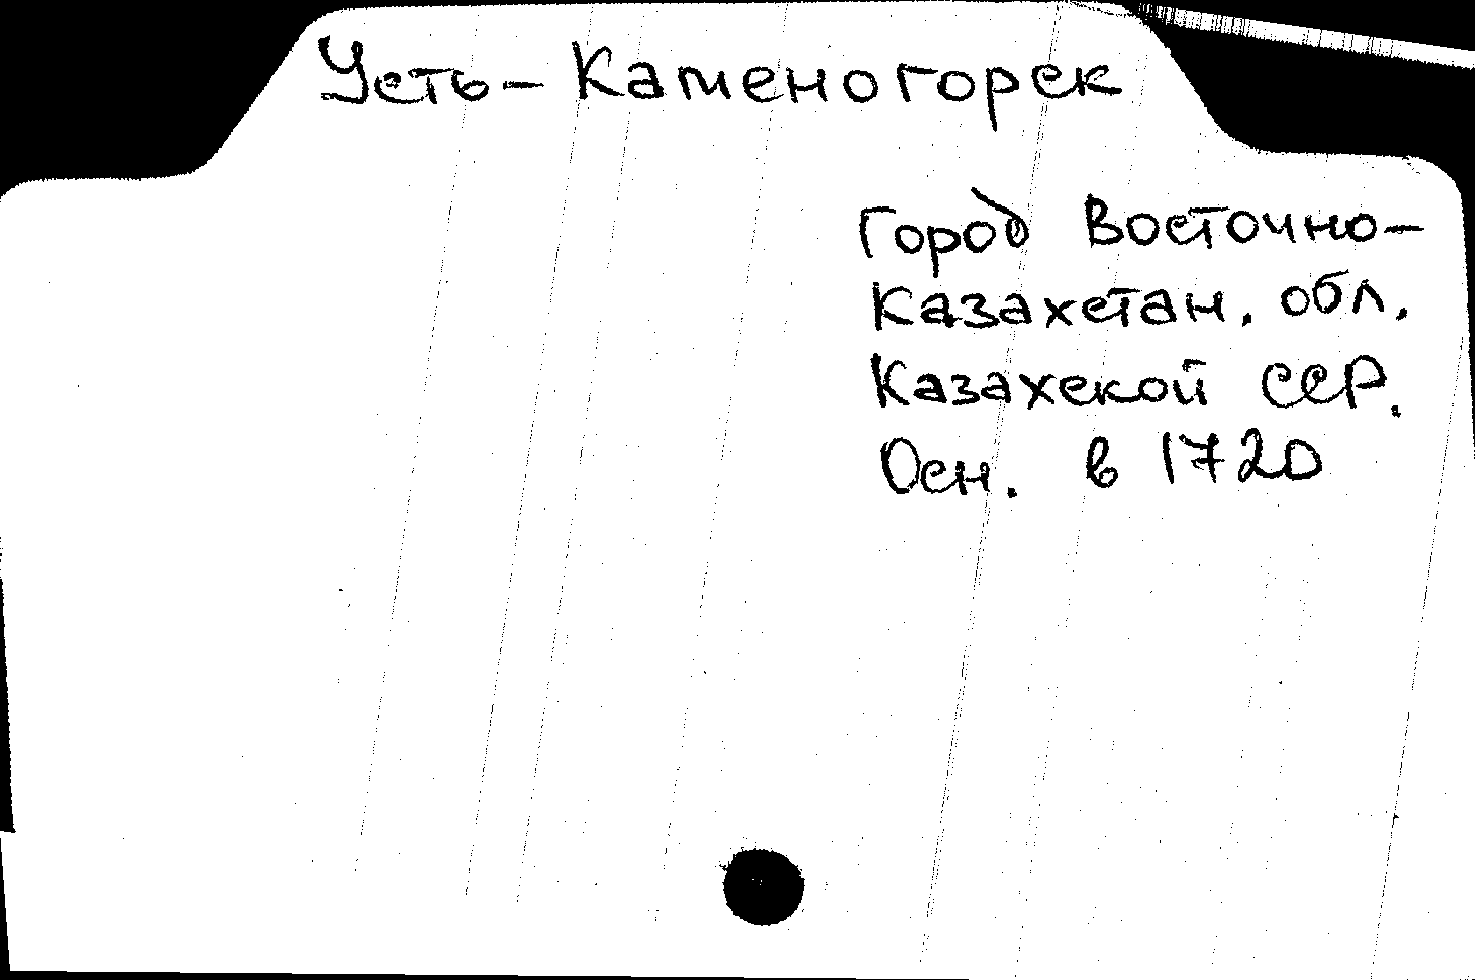 Усть-Каменогорск
Город Восточно-
Казахстан. обл.
Казахской ССР.
Осн. в 1720